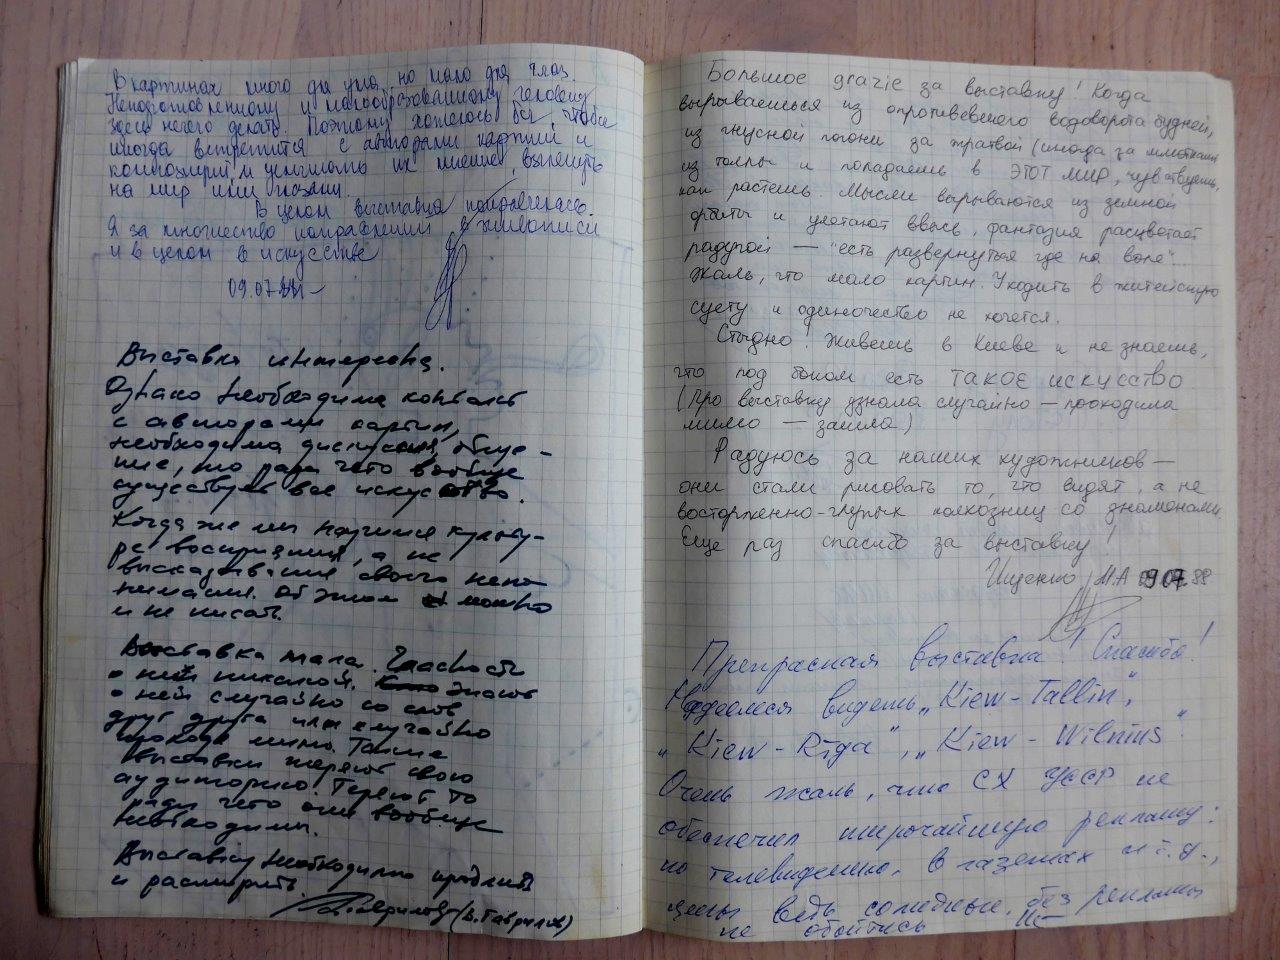 В картинах много для ума, но мало для глаз.
Неподготовленному и малообразованному человеку
здесь нечего делать. Поэтому хотелось бы, чтобы
иногда встретится с авторами картин и
композиций и услышать их мнение,
на мир или поэзии.
В целом выставка понравилась.
Я за множество направлений в живописи
и в целом в искусстве
09.07.88г
Выставка интересна.
Однако необходима
с авторами картин,
необходима дискуссия, обще-
ние, то ради чего вообще
существует все искусство.
Когда же мы научимся культу-
ре восприятия, а не
высказывания своего непо-
нимания. Об этом можно
и не писать.
Выставка мала. Гласности
о ней никакой. Знают
о ней случайно со слов
друг друга или случайно
проходя мимо. Такие
выставки теряют свою
аудиторию. Теряют то
ради чего они вообще
необходимы.
Выставку необходимо продлить
и расширить.
(В. Гаврилов)
Большое grazie за выставку! Когда
вырываешься из опротивевшего водоворота будней,
из гнусной погони за жратвой (иногда за шмотками
из толпы и попадаешь в ЭТОТ МИР, чувствуешь,
как растешь. Мысли вырываются из земной
орбиты и улетают ввысь, фантазия расцветает
радугой — "есть развернуться где на воле"...
Жаль, что мало картин. Уходить в житейскую
суету и одиночество не хочется.
Стыдно! Живешь в Киеве и не знаешь,
что под боком есть ТАКОЕ искусство
(Про выставку узнала случайно — проходила
мимо — зашла)
Радуюсь за наших художников —
они стали рисовать то, что видят, а не
восторженно-глупых колхозниц со знаменами
Еще раз спасибо за выставку!
Ищенко М.А 09.07.88
Прекрасная выставка! Спасибо!
Надеемся видеть „Kiew-Tallin",
„Kiew-Rīga", „Kiew-Wilnius".
Очень жаль, что СХ УССР не
обеспечил широчайшую рекламу:
по телевидению, в газетах и т.д.,
ведь солидные, без рекламы
не обойтись